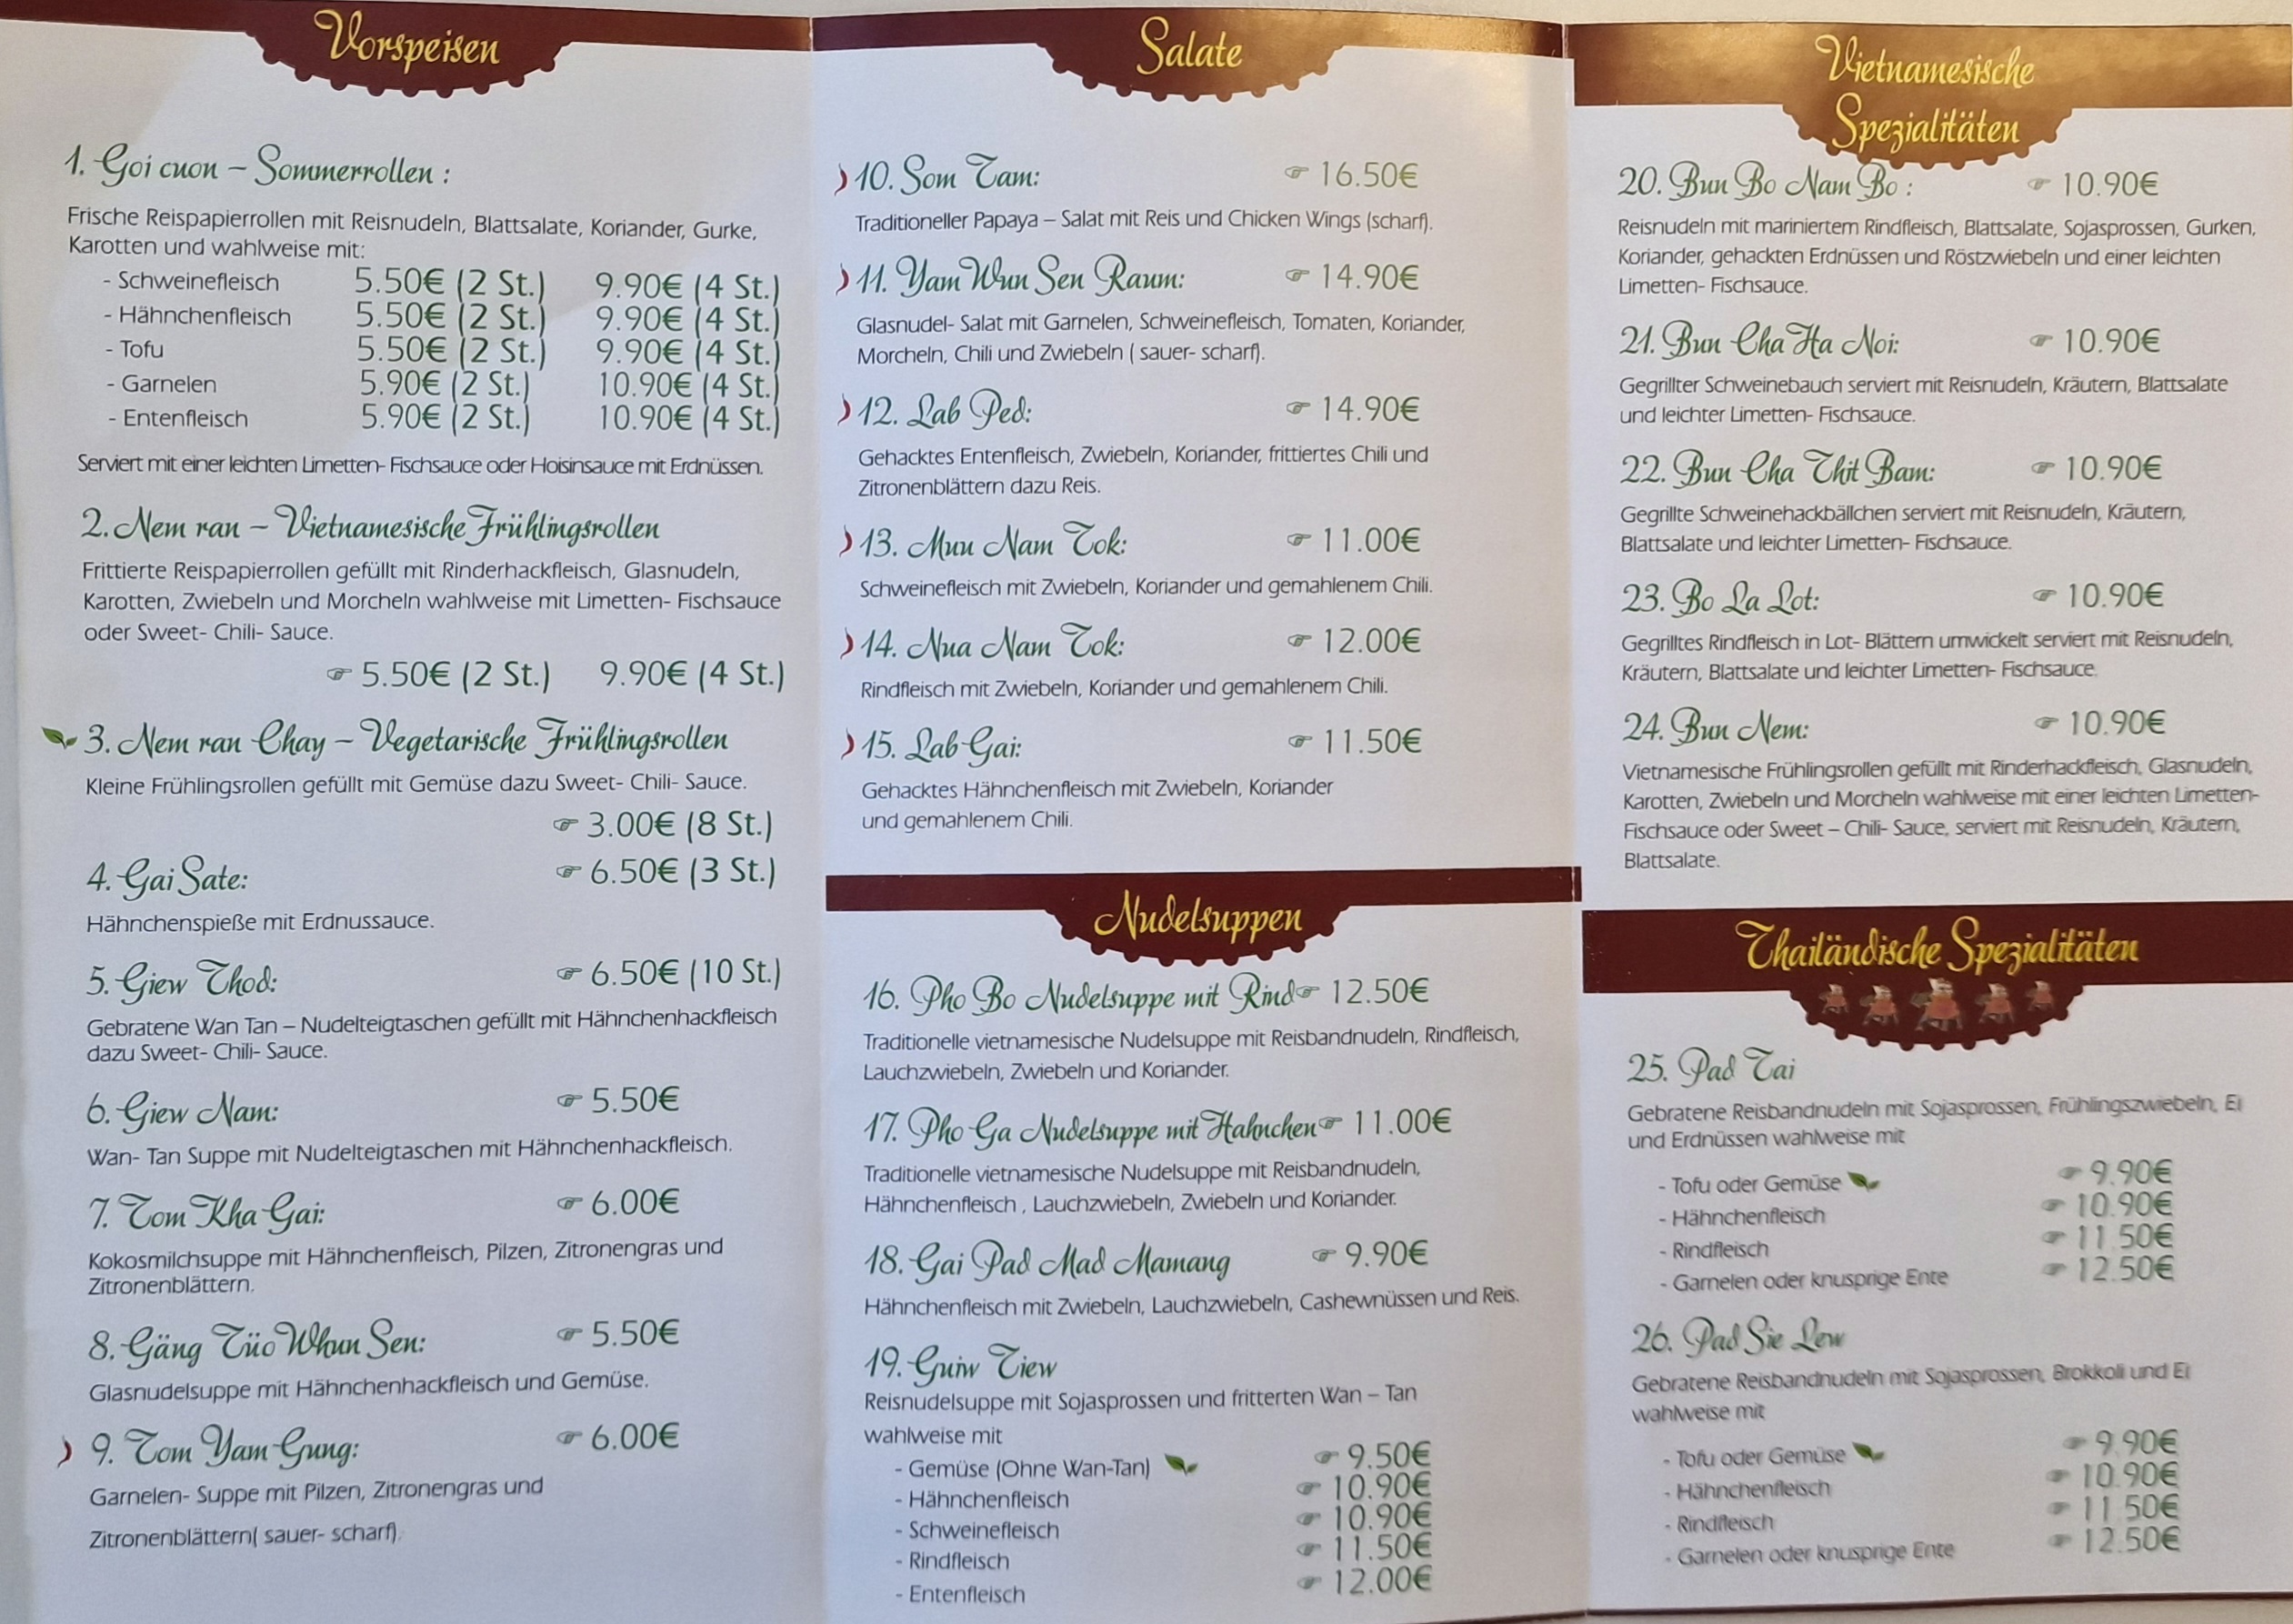 Vorspeisen
1. Goi cuon – Sommerrollen :
Frische Reispapierrollen mit Reisnudeln, Blattsalate, Koriander, Gurke,
Karotten und wahlweise mit:
- Schweinefleisch 5.50€ (2 St.) 9.90€ (4 St.)
- Hähnchenfleisch 5.50€ (2 St.) 9.90€ (4 St.)
- Tofu 5.50€ (2 St.) 9.90€ (4 St.)
- Garnelen 5.90€ (2 St.) 10.90€ (4 St.)
- Entenfleisch 5.90€ (2 St.) 10.90€ (4 St.)
Serviert mit einer leichten Limetten- Fischsauce oder Hoisinsauce mit Erdnüssen.
2. Nem ran – Vietnamesische Frühlingsrollen
Frittierte Reispapierrollen gefüllt mit Rinderhackfleisch, Glasnudeln,
Karotten, Zwiebeln und Morcheln wahlweise mit Limetten- Fischsauce
oder Sweet- Chili- Sauce.
☞ 5.50€ (2 St.) 9.90€ (4 St.)
3. Nem ran Chay – Vegetarische Frühlingsrollen
Kleine Frühlingsrollen gefüllt mit Gemüse dazu Sweet- Chili- Sauce.
☞ 3.00€ (8 St.)
4. Gai Sate: ☞ 6.50€ (3 St.)
Hähnchenspieße mit Erdnussauce.
5. Giew Thod: ☞ 6.50€ (10 St.)
Gebratene Wan Tan – Nudelteigtaschen gefüllt mit Hähnchenhackfleisch
dazu Sweet- Chili- Sauce.
6. Giew Nam: ☞ 5.50€
Wan- Tan Suppe mit Nudelteigtaschen mit Hähnchenhackfleisch.
7. Tom Kha Gai: ☞ 6.00€
Kokosmilchsuppe mit Hähnchenfleisch, Pilzen, Zitronengras und
Zitronenblättern.
8. Gäng Tüo Whun Sen: ☞ 5.50€
Glasnudelsuppe mit Hähnchenhackfleisch und Gemüse.
9. Tom Yam Gung: ☞ 6.00€
Garnelen- Suppe mit Pilzen, Zitronengras und
Zitronenblättern( sauer- scharf).
Salate
10. Som Tam: ☞ 16.50€
Traditioneller Papaya – Salat mit Reis und Chicken Wings (scharf).
11. Yam Wun Sen Raum: ☞ 14.90€
Glasnudel- Salat mit Garnelen, Schweinefleisch, Tomaten, Koriander,
Morcheln, Chili und Zwiebeln ( sauer- scharf).
12. Lab Ped: ☞ 14.90€
Gehacktes Entenfleisch, Zwiebeln, Koriander, frittiertes Chili und
Zitronenblättern dazu Reis.
13. Muu Nam Tok: ☞ 11.00€
Schweinefleisch mit Zwiebeln, Koriander und gemahlenem Chili.
14. Nua Nam Tok: ☞ 12.00€
Rindfleisch mit Zwiebeln, Koriander und gemahlenem Chili.
15. Lab Gai: ☞ 11.50€
Gehacktes Hähnchenfleisch mit Zwiebeln, Koriander
und gemahlenem Chili.
Nudelsuppen
16. Pho Bo Nudelsuppe mit Rind ☞ 12.50€
Traditionelle vietnamesische Nudelsuppe mit Reisbandnudeln, Rindfleisch,
Lauchzwiebeln, Zwiebeln und Koriander.
17. Pho Ga Nudelsuppe mit Hahnchen ☞ 11.00€
Traditionelle vietnamesische Nudelsuppe mit Reisbandnudeln,
Hähnchenfleisch , Lauchzwiebeln, Zwiebeln und Koriander.
18. Gai Pad Mad Mamang ☞ 9.90€
Hähnchenfleisch mit Zwiebeln, Lauchzwiebeln, Cashewnüssen und Reis.
19. Guiw Tiew
Reisnudelsuppe mit Sojasprossen und fritterten Wan – Tan
wahlweise mit
- Gemüse (Ohne Wan-Tan) ☞ 9.50€
- Hähnchenfleisch ☞ 10.90€
- Schweinefleisch ☞ 10.90€
- Rindfleisch ☞ 11.50€
- Entenfleisch ☞ 12.00€
Vietnamesische
Spezialitäten
20. Bun Bo Nam Bo : ☞ 10.90€
Reisnudeln mit mariniertem Rindfleisch, Blattsalate, Sojasprossen, Gurken,
Koriander, gehackten Erdnüssen und Röstzwiebeln und einer leichten
Limetten- Fischsauce.
21. Bun Cha Ha Noi: ☞ 10.90€
Gegrillter Schweinebauch serviert mit Reisnudeln, Kräutern, Blattsalate
und leichter Limetten- Fischsauce.
22. Bun Cha Thit Bam: ☞ 10.90€
Gegrillte Schweinehackbällchen serviert mit Reisnudeln, Kräutern,
Blattsalate und leichter Limetten- Fischsauce.
23. Bo La Lot: ☞ 10.90€
Gegrilltes Rindfleisch in Lot- Blättern umwickelt serviert mit Reisnudeln,
Kräutern, Blattsalate und leichter Limetten- Fischsauce.
24. Bun Nem: ☞ 10.90€
Vietnamesische Frühlingsrollen gefüllt mit Rinderhackfleisch, Glasnudeln,
Karotten, Zwiebeln und Morcheln wahlweise mit einer leichten Limetten-
Fischsauce oder Sweet – Chili- Sauce, serviert mit Reisnudeln, Kräutern,
Blattsalate.
Thailändische Spezialitäten
25. Pad Tai
Gebratene Reisbandnudeln mit Sojasprossen, Frühlingszwiebeln, Ei
und Erdnüssen wahlweise mit
- Tofu oder Gemüse ☞ 9.90€
- Hähnchenfleisch ☞ 10.90€
- Rindfleisch ☞ 11.50€
- Garnelen oder knusprige Ente ☞ 12.50€
26. Pad Sie Lew
Gebratene Reisbandnudeln mit Sojasprossen, Brokkoli und Ei
wahlweise mit
- Tofu oder Gemüse ☞ 9.90€
- Hähnchenfleisch ☞ 10.90€
- Rindfleisch ☞ 11.50€
- Garnelen oder knusprige Ente ☞ 12.50€